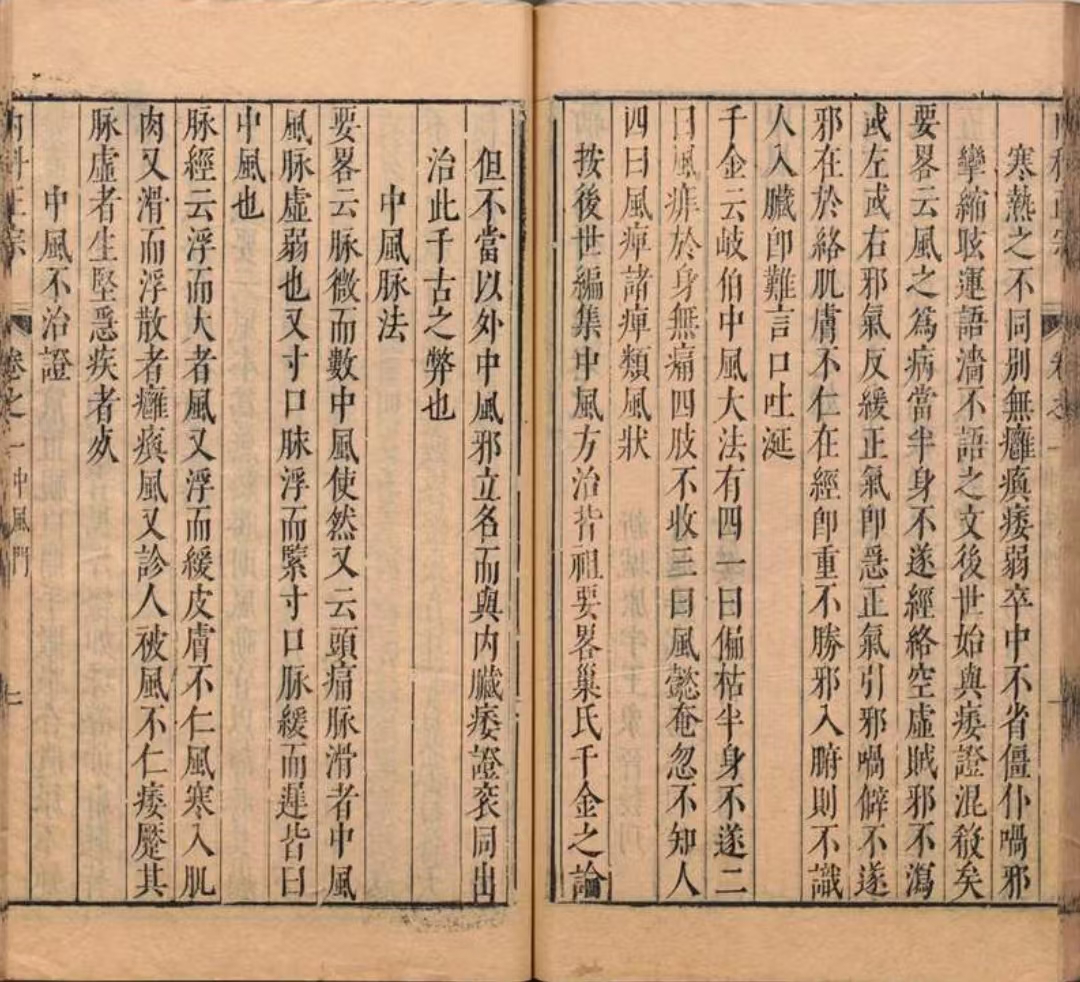 寒熱之不同別無癱瘓痿弱卒中不省僵仆喎邪
攣縮眩運語濇不語之文後世始與痿證混殽矣
要畧云風之爲病當半身不遂經絡空虛賊邪不瀉
或左或右邪氣反緩正氣卽急正氣引邪喎僻不遂
邪在於絡肌膚不仁在經卽重不勝邪入腑則不識
人入臟卽難言口吐涎
千金云岐伯中風大法有四一曰偏枯半身不遂二
曰風痱於身無痛四肢不收三曰風懿奄忽不知人
四曰風痺諸痺類風狀
按後世編集中風方治皆祖要畧巢氏千金之論
但不當以外中風邪立名而與内臟痿證衮同出
治此千古之弊也
中風脉法
要畧云脉微而數中風使然又云頭痛脉滑者中風
風脉虛弱也又寸口脉浮而緊寸口脉緩而遲皆曰
中風也
脉經云浮而大者風又浮而緩皮膚不仁風寒入肌
肉又滑而浮散者癱瘓風又診人被風不仁痿蹷其
脉虛者生堅急疾者死
中風不治證
内科正宗 卷之一 中風門